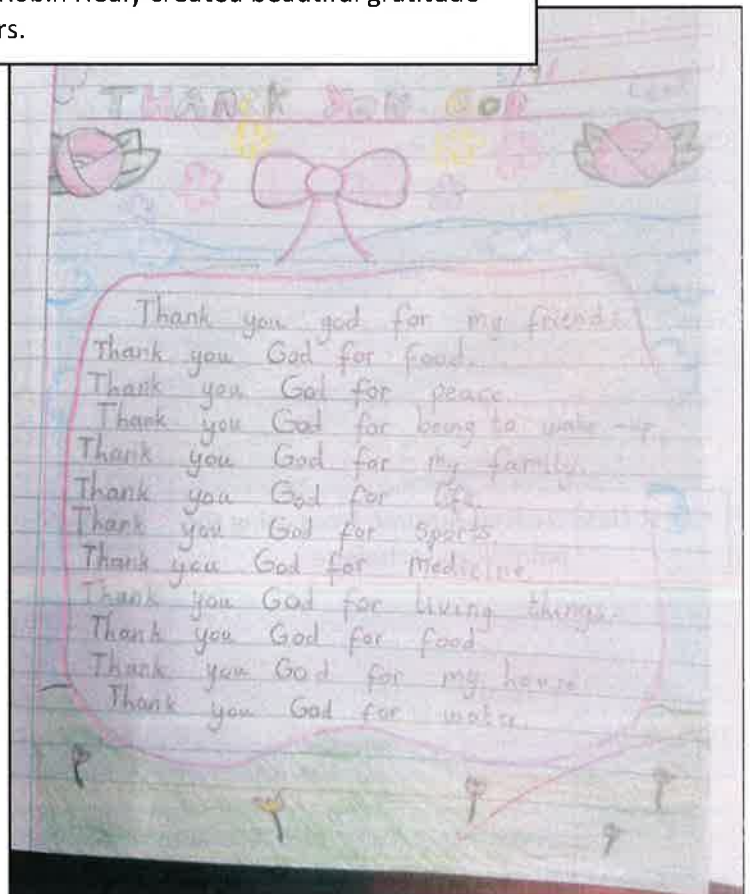 Robin Nealy created beautiful gratitude
rs.
THANCK YOU GOD
Thank you god for my friends.
Thank you God for food.
Thank you God for peace.
Thank you God for being to wake-up.
Thank you God for my family.
Thank you God for life.
Thank you God for sports
Thank you God for medicine.
Thank you God for living things.
Thank you God for food
Thank you God for my house
Thank you God for water.